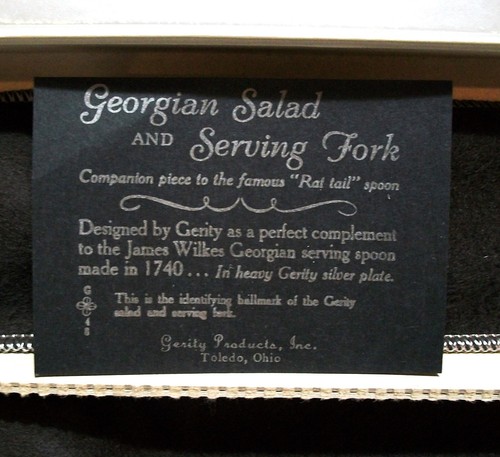 Georgian Salad
AND Serving Fork
Companion piece to the famous "Rat tail" spoon
Designed by Gerity as a perfect complement
to the James Wilkes Georgian serving spoon
made in 1740 ... In heavy Gerity silver plate.
G
48
This is the identifying hallmark of the Gerity
salad and serving fork.
Gerity Products, Inc.
Toledo, Ohio